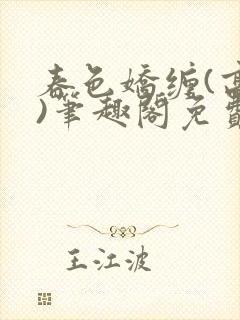 春色嬌纏(高
)筆趣閣免費
王江波